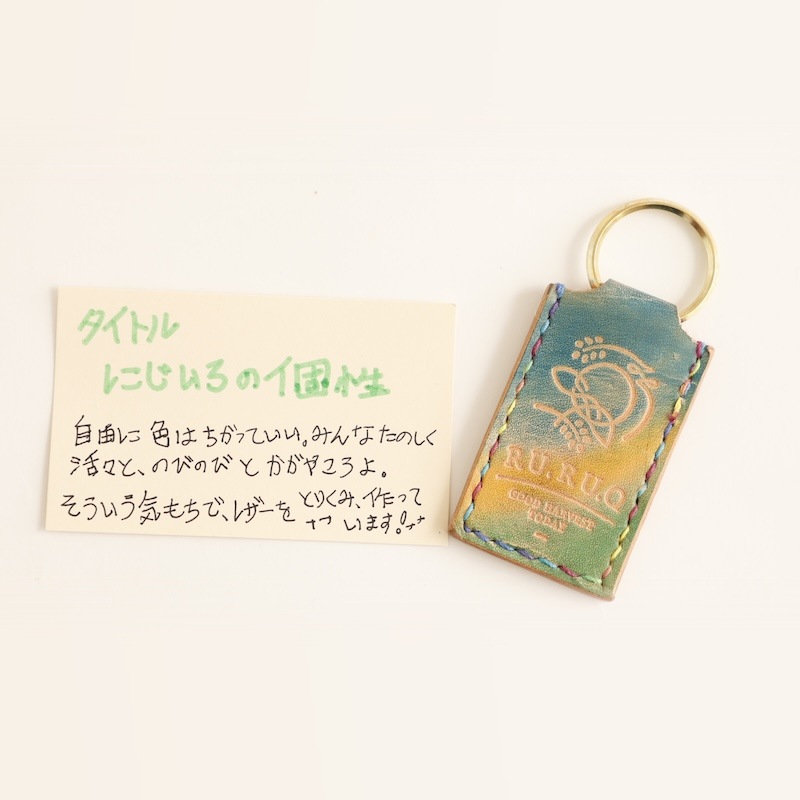 タイトル
にじいろの個性
自由に色はちがっていい。みんなたのしく
活々と、のびのびとかがやころよ。
そういう気もちで、レザーをとりくみ、作って
います!
RU.RU.Q
GOOD HARVEST
TODAY